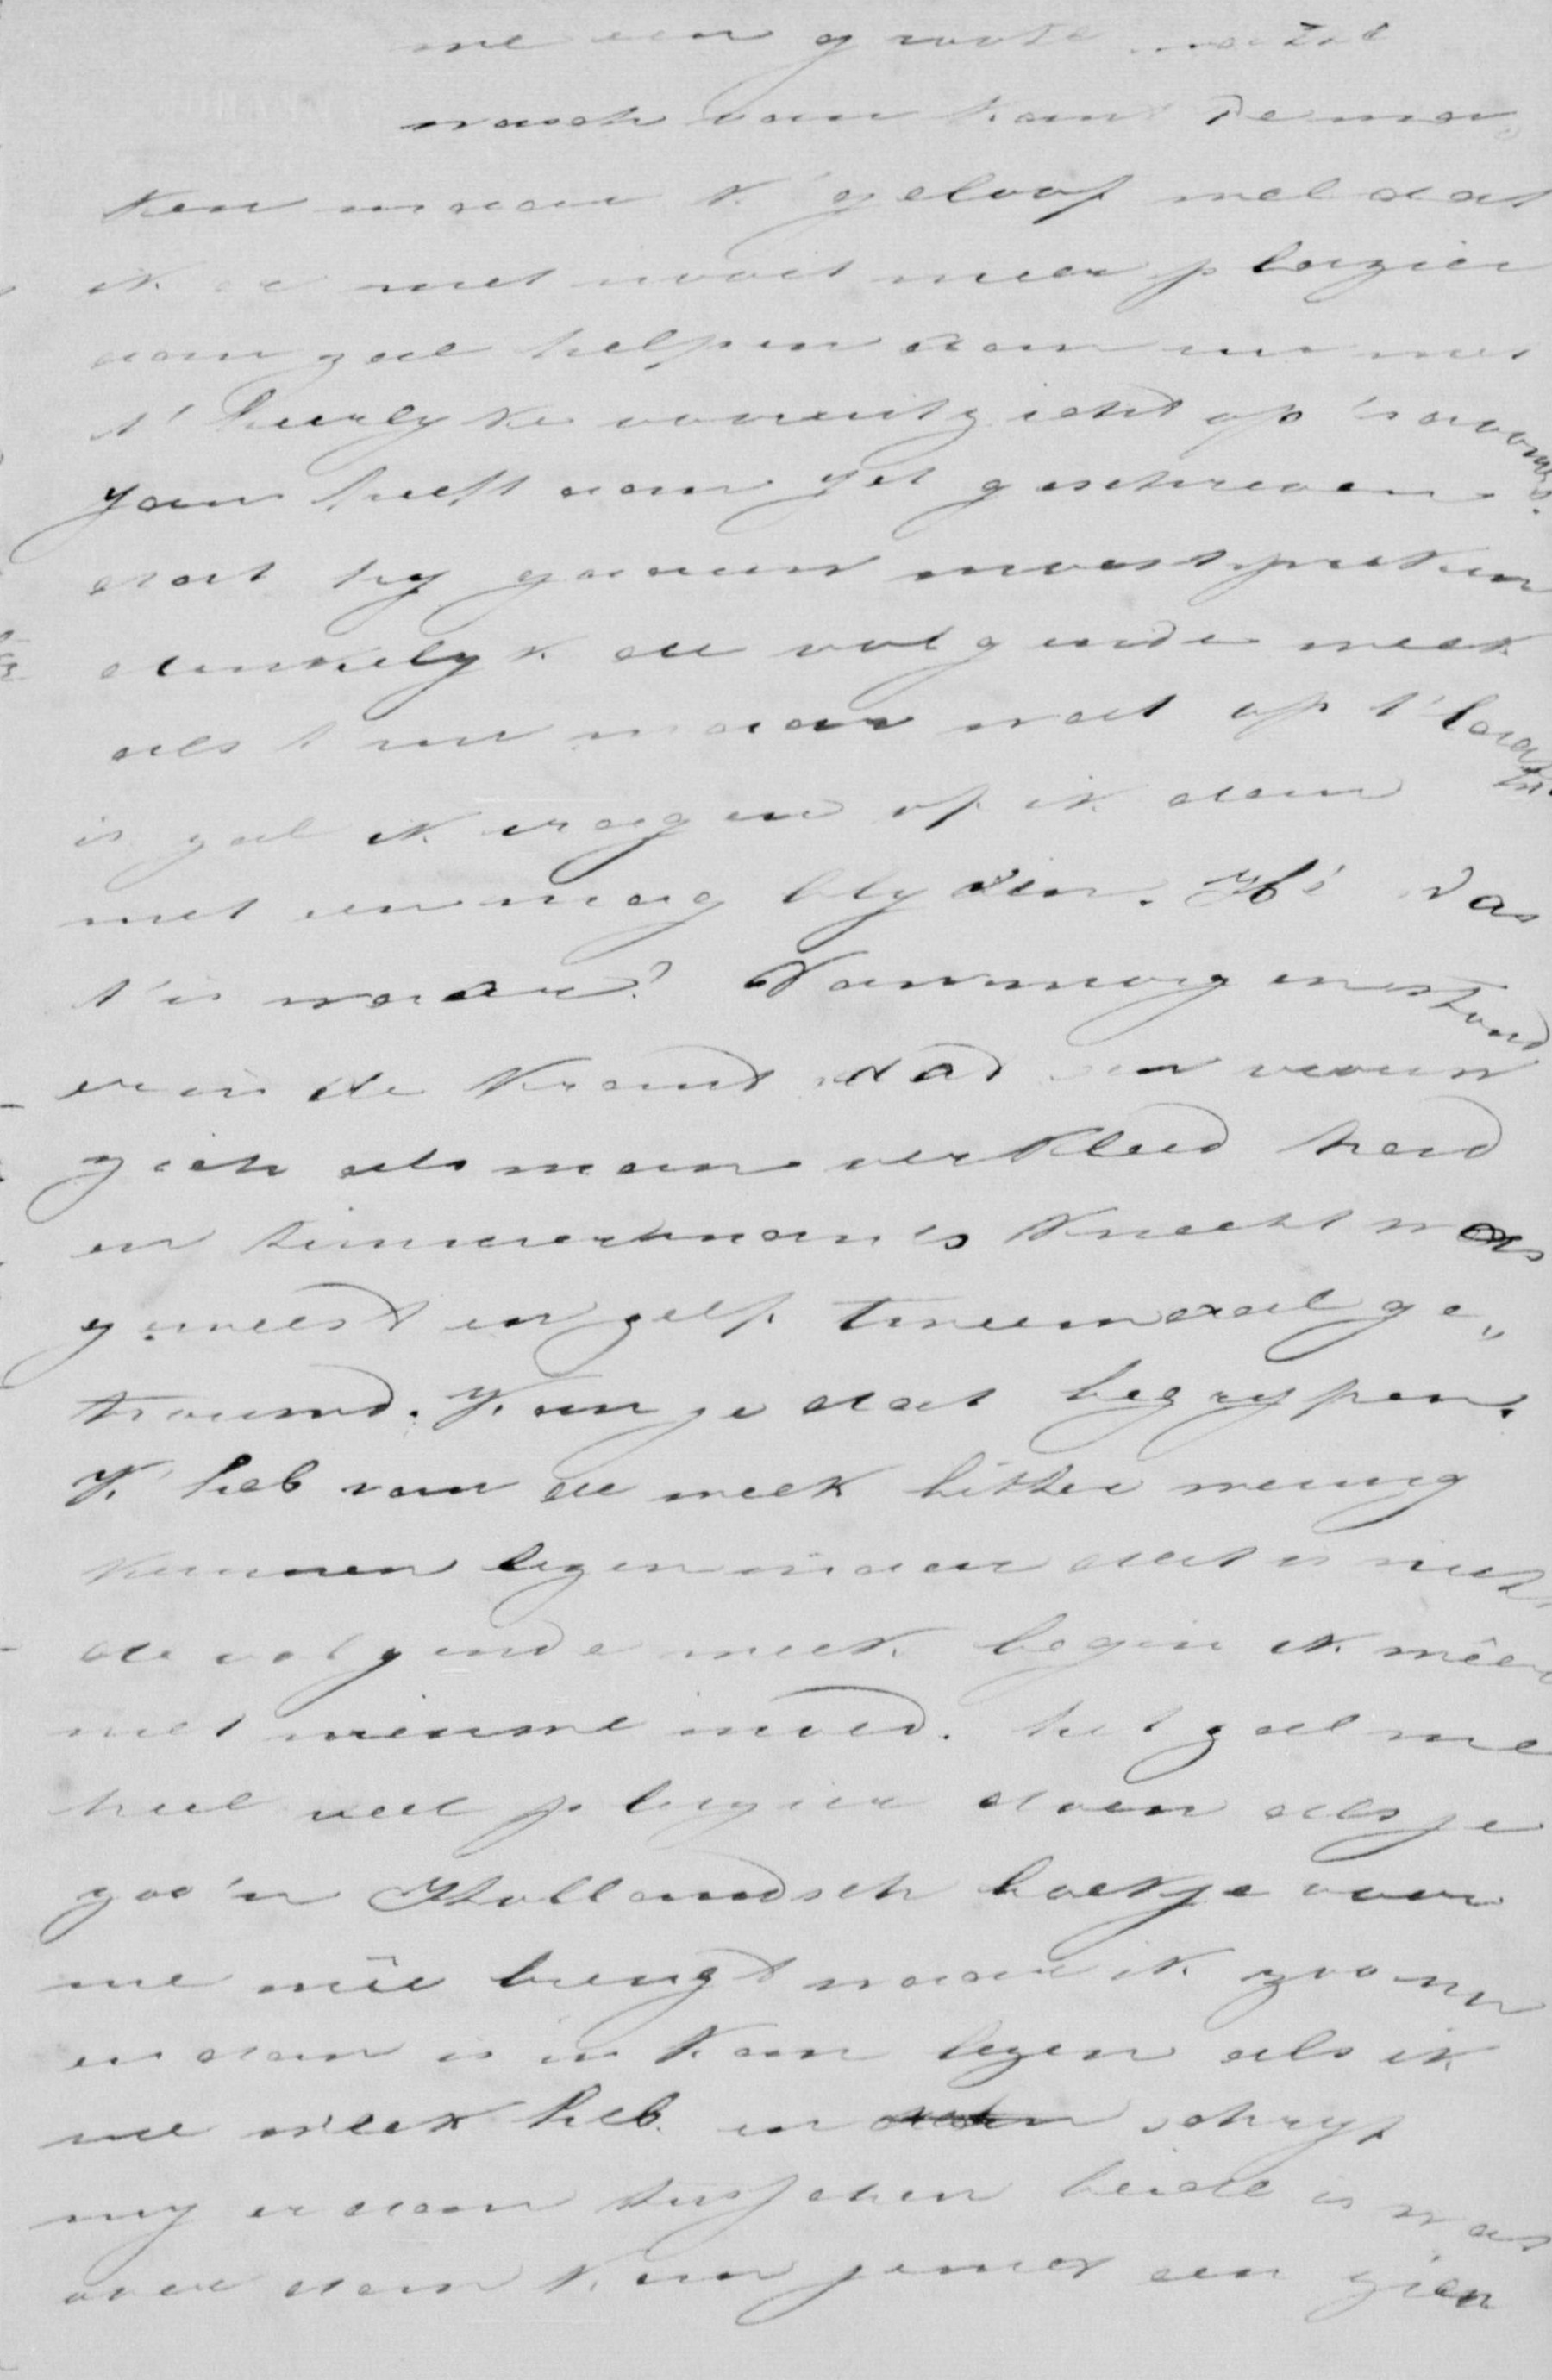 me een groote
wasch van kant te ma
ken maar k' geloof wel dat
ik er met nooit meer plezier
aan zal helpen dan nu met
t' heerlyke vooruitzicht op 's avonds.
Jan heeft aan Jet geschreven
dat hy gaauw moest preken
denkelyk de volgende week
als t nu maar niet op t' laatst
is zal ik vragen of ik dan
met een mag blyven. Hè was
t' is waar? Van morgen stond
er in de krant dat een vrouw
zich als man verkleed had
en timmermans knecht was
geweest en zelf tweemaal ge„
trouwd. Kan je dat begrypen.
K' heb van de week bitter weinig
kunnen lezen maar dat is niets
de volgende week begin ik wêer
met nieuwe moed. het zal me
heel veel plezier doen als je
zoo'n Hollandsch boekje voor
me mêe brengt waar ik zoo nu
en dan is in kan lezen als ik
me week heb en schryf
my er dan tusschen beide is wat
over dan kan je met een zien